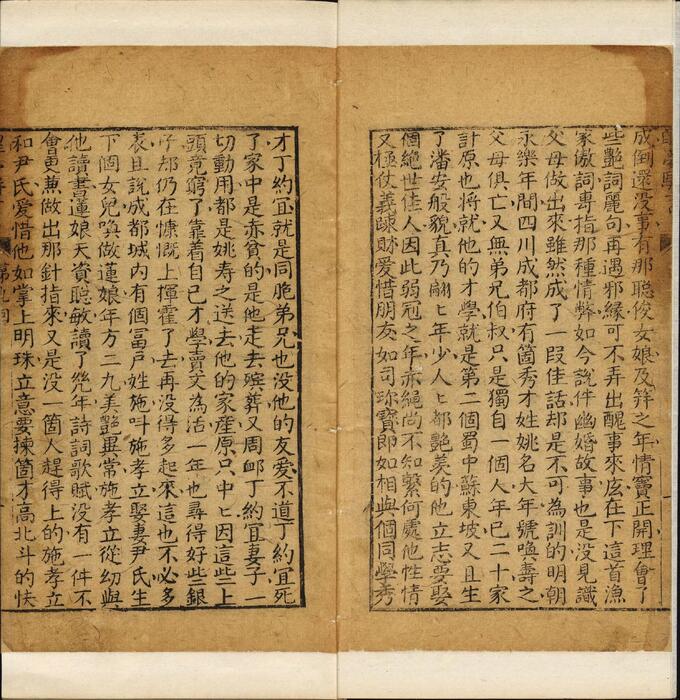 成倒還没事有那聰俊女娘及筓之年情竇正開理會了
些艷詞麗句再遇邪緣可不弄出醜事來広在下這首漁
家傲詞専指那種情弊如今說件幽婚故事也是没見識
父母做出來雖然成了一叚佳話却是不可為訓的明朝
永樂年間四川成都府有箇秀才姓姚名大年號喚壽之
父母俱亡又無弟兄伯叔只是獨自一個人年已二十家
計原也將就他的才學就是第二個蜀中蘇東坡又且生
了潘安般貌真乃翩ヒ年少人ヒ都艷羙的他立志要娶
個絶世佳人因此弱冠之年赤繩尚不知繫何處他性情
又極仗義踈財爱惜朋友如司珎寳即如相與個同學秀
才丁約宜就是同胞弟兄也没他的友爱不道丁約宜死
了家中是赤貧的是他走去殯葬又周邮丁約宜妻子一
切動用都是姚寿之送去他的家産原只中ヒ因這些上
頭竟窮了靠着自己才學賣文為活一年也尋得好些銀
子却仍在慷慨上揮霍了去再没得多起來這也不必多
表且說成都城内有個冨户姓施叫施孝立娶妻尹氏生
下個女兒喚做蓮娘年方二九美艷異常施孝立從幼與
他讀書蓮娘天資聡敏讀了㡬年詩詞歌賦没有一件不
會更兼做出那針指來又是没一箇人趕得上的施孝立
和尹氏爱惜他如掌上明珠立意要揀箇才高北斗的快